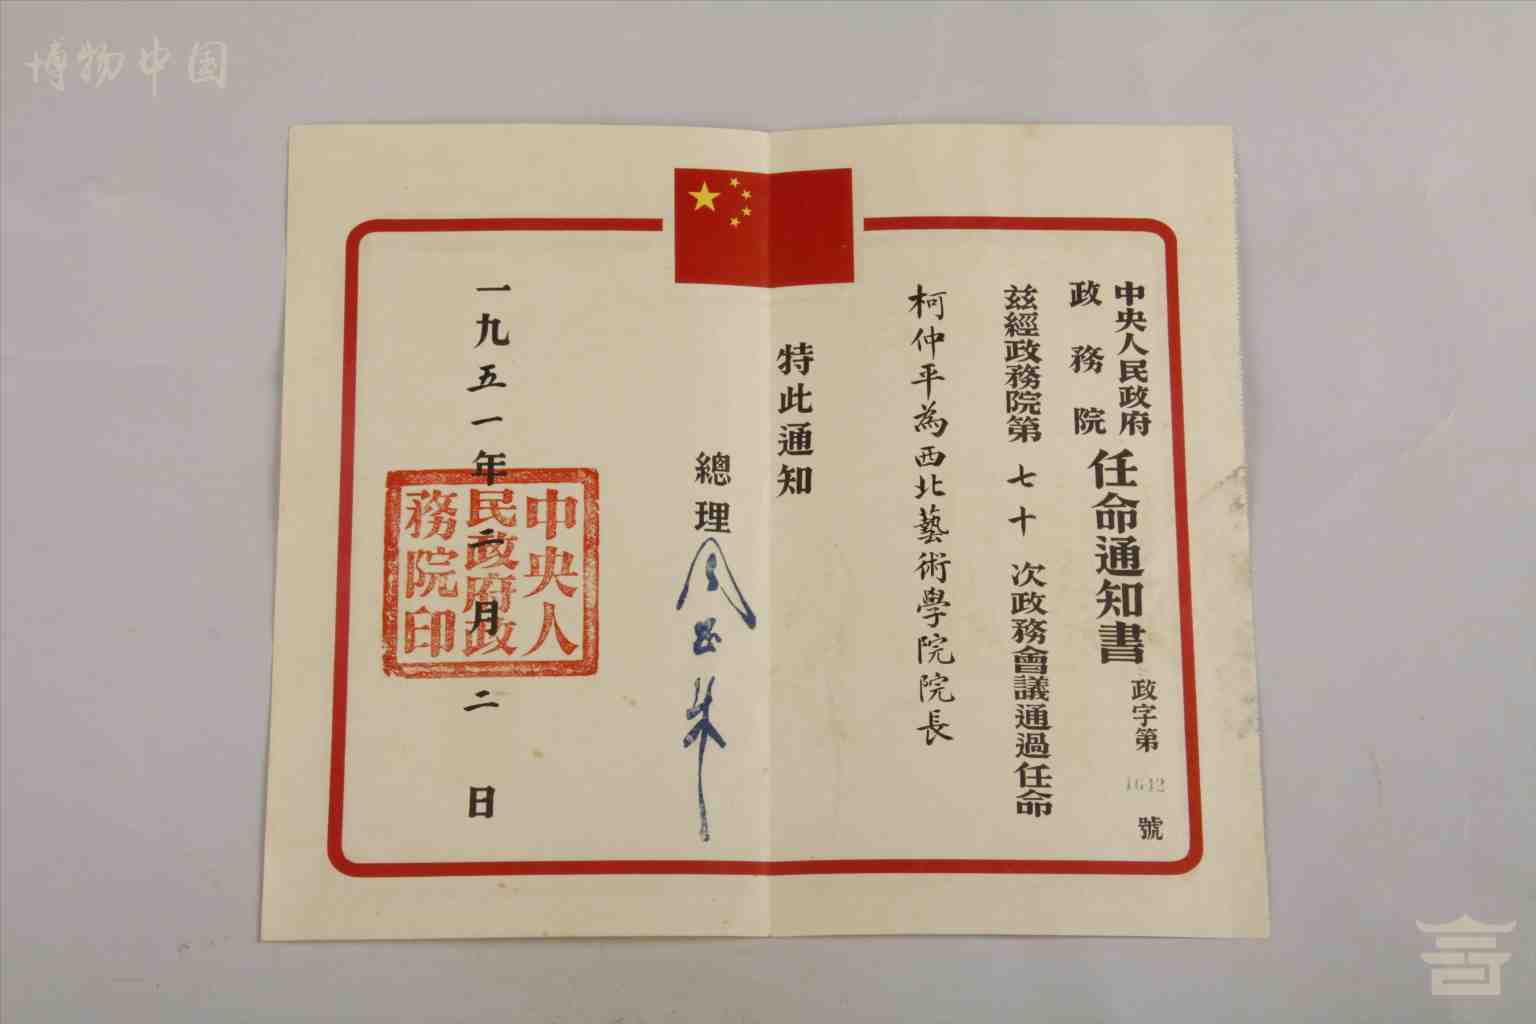 博物中国
中央人民政府
政務院
任命通知書
政字第1642號
兹經政務院第七十次政務會議通過任命
柯仲平為西北藝術學院院長
特此通知
總理
周恩来
一九五一年二月二日
中央人
民政府政
務院印